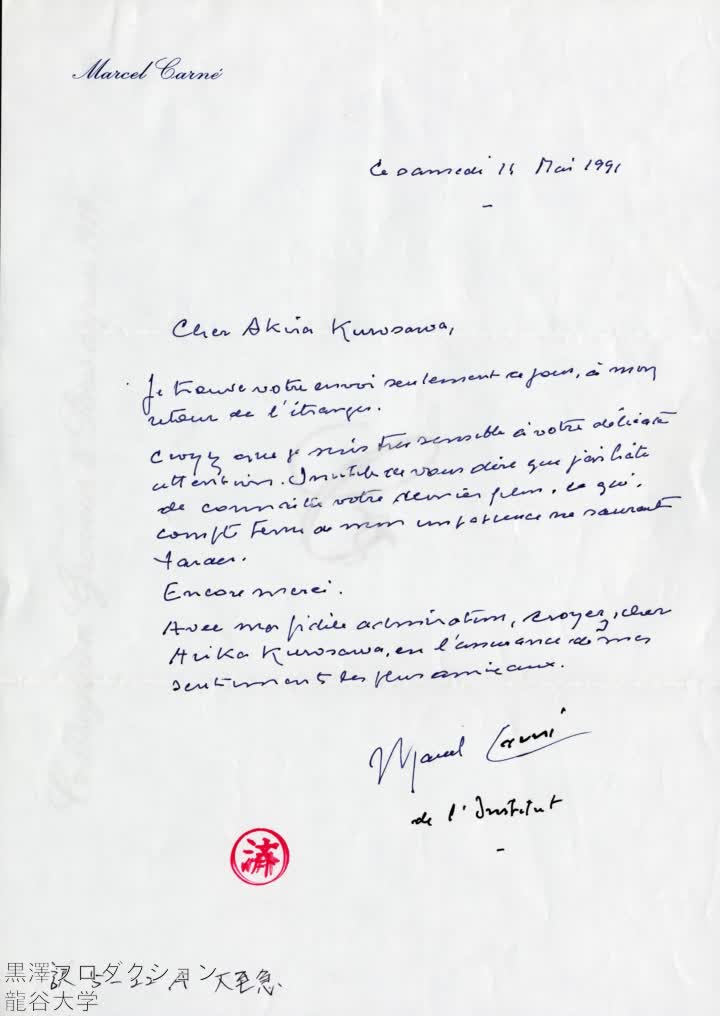 Marcel Carné
Ce samedi 11 Mai 1991
Cher Akira Kurosawa,
Je trouve votre envoi seulement ce jour, à mon
retour de l'étranger.
Croyez que je suis très sensible à votre délicate
attention. Inutile de vous dire que j'ai hâte
de connaître votre dernier film, ce qui,
compte tenu de mon impatience ne saurait
tarder.
Encore merci.
Avec ma fidèle admiration, croyez, cher
Arika Kurosawa, en l'assurance de mes
sentiments les plus amicaux.
Marcel Carné
de l'Institut
済
黒澤プロダクション
龍谷大学
5-22 大至急